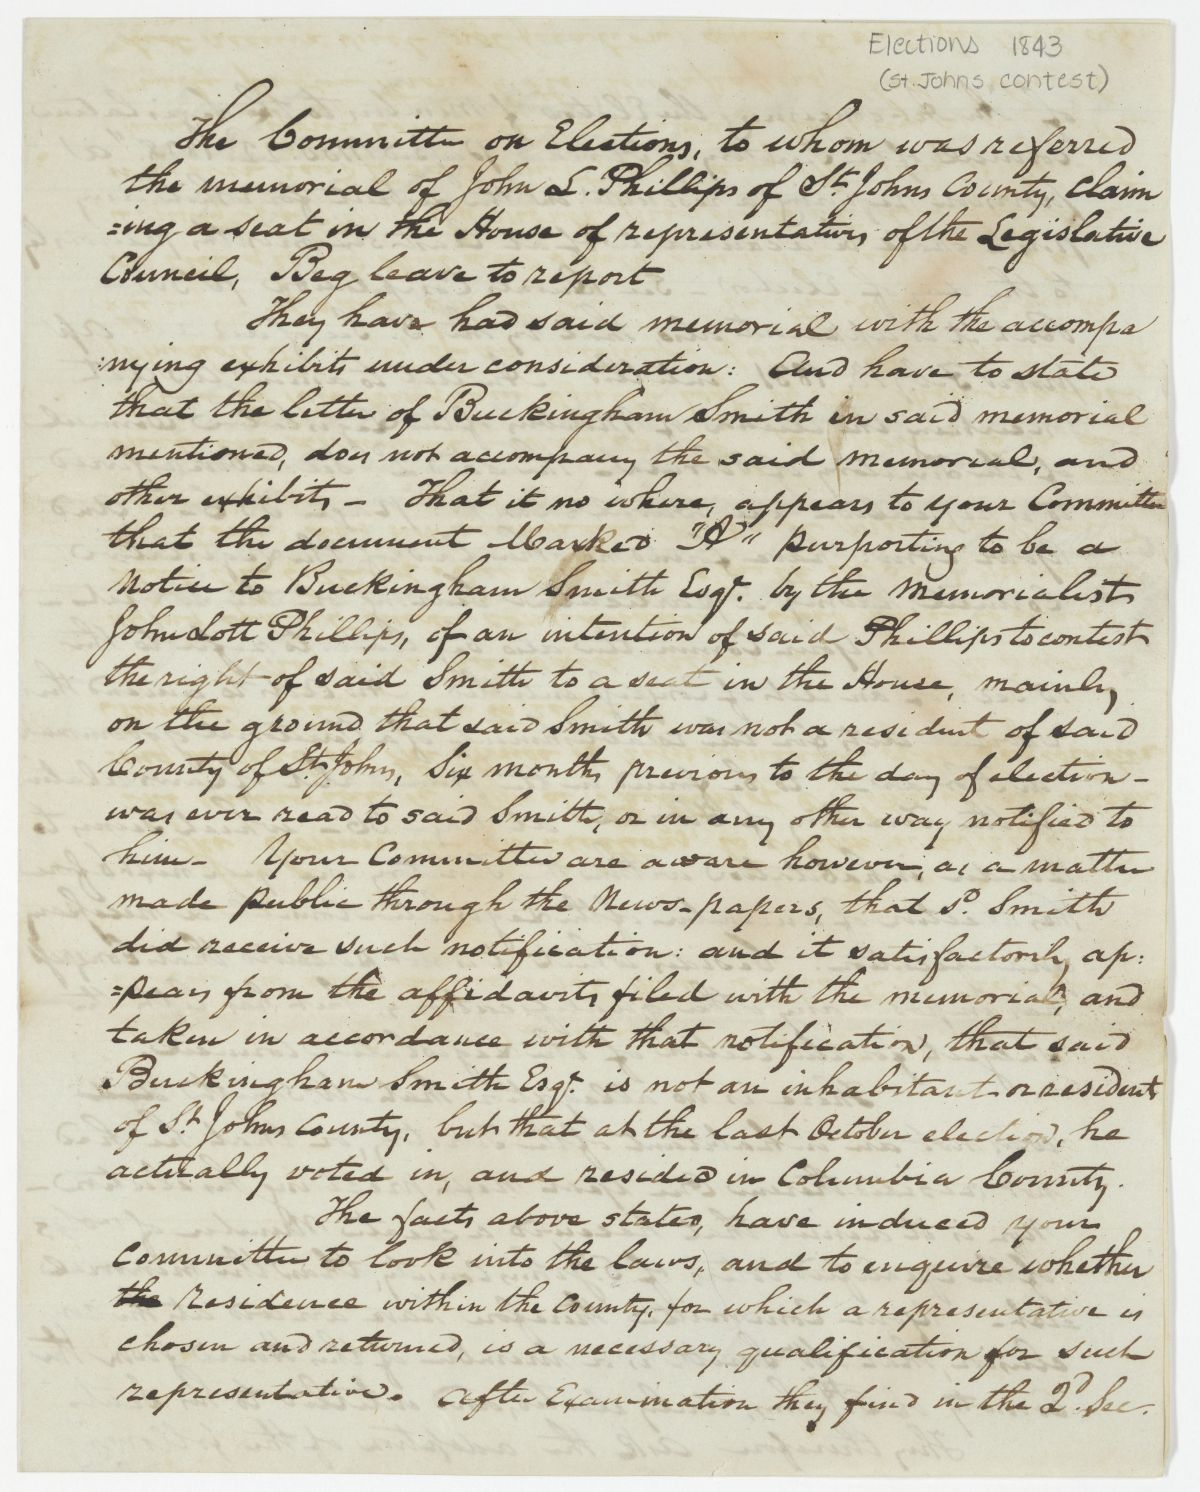 Elections 1843
(St. Johns contest)
The Committee on Elections, to whom was referred
the memorial of John L. Phillips of St. Johns County, claim
=ing a seat in the House of representatives of the Legislative
Council, Beg leave to report
They have had said memorial with the accompa
:nying exhibits under consideration: And have to state
that the letter of Buckingham Smith in said memorial
mentioned, does not accompany the said memorial, and
other exhibits - That it no where, appears to your Committee
that the document Marked "A" purporting to be a
Notice to Buckingham Smith Esqr. by the Memorialist
John Lott Phillips, of an intention of said Phillips to contest
the right of said Smith to a seat in the House, mainly
on the ground that said Smith was not a resident of said
County of St. Johns, Six months previous to the day of election -
was ever read to said Smith, or in any other way notified to
him - Your Committee are aware however, as a matter
made public through the News-papers, that sd. Smith
did receive such notification: and it satisfactorily ap:
=pears from the affidavits filed with the memorial, and
taken in accordance with that notification, that said
Buckingham Smith Esqr. is not an inhabitant or resident
of St. Johns County, but that at the last October election, he
actually voted in, and resided in Columbia County.
The facts above stated, have induced your
Committee to look into the laws, and to enquire whether
the residence within the County, for which a representative is
chosen and returned, is a necessary qualification for such
representative. After Examination they find in the 2d. Sec.